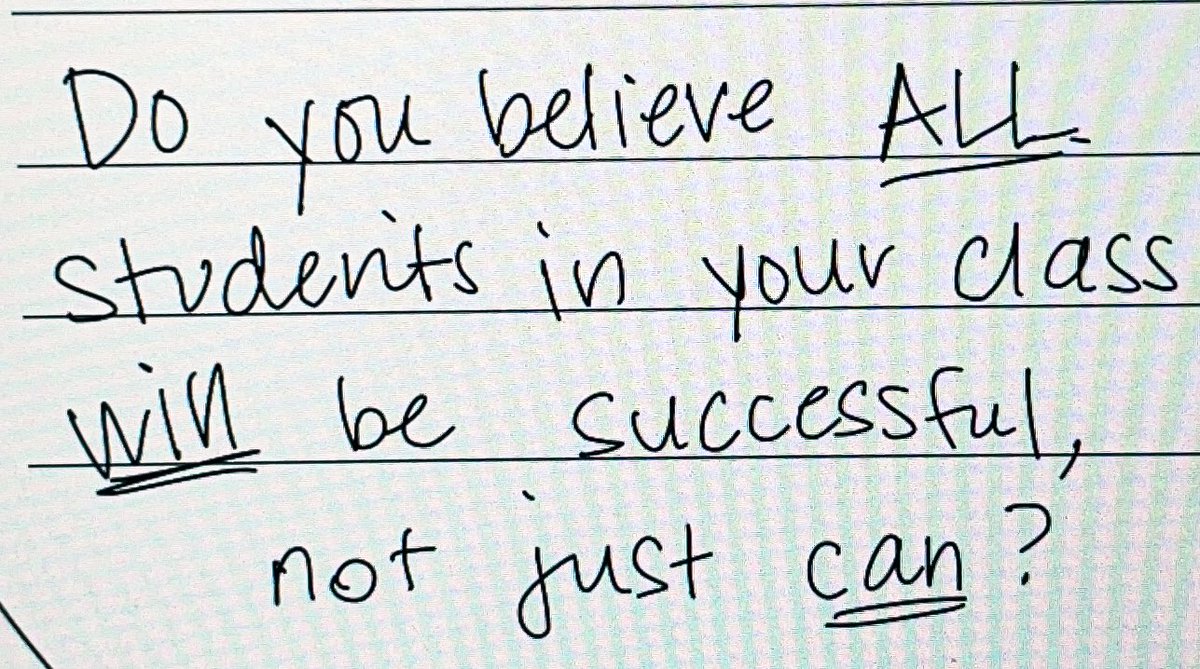 Do you believe ALL
students in your class
will be successful,
not just can?